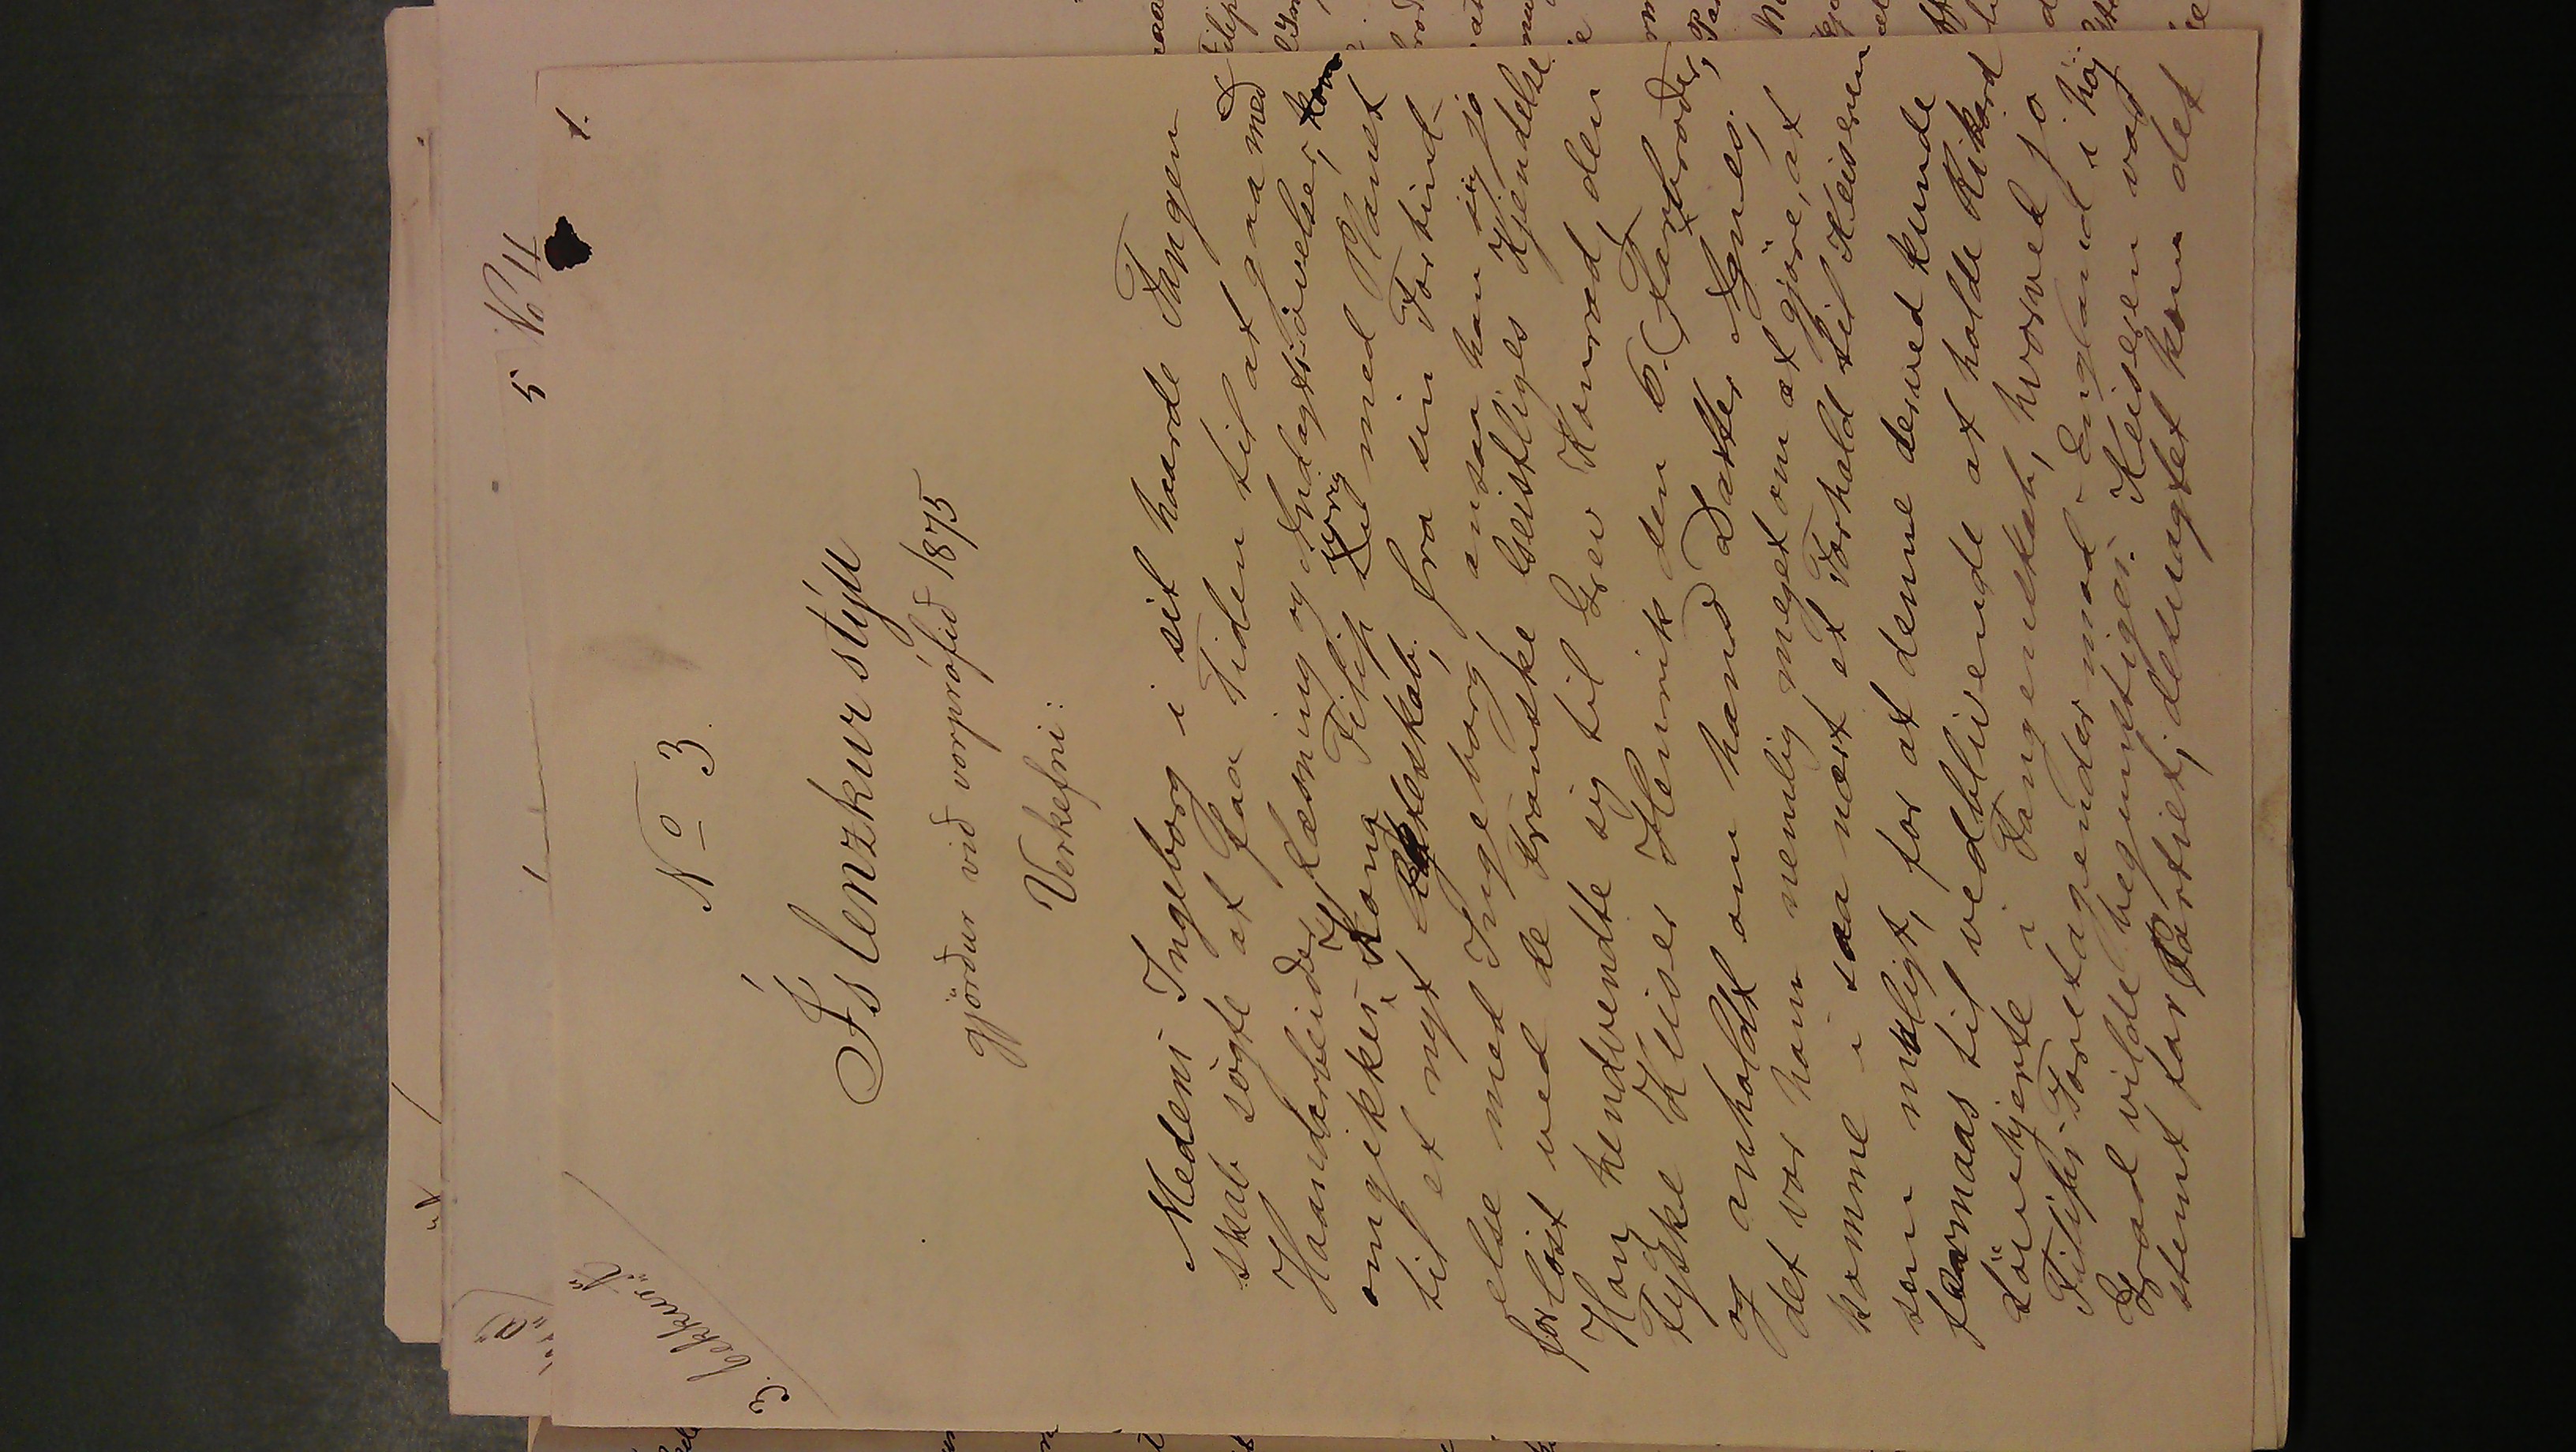 5 No 4
1.
3. bekkur "A"
No 3.
Íslenzkur stýll
gjörður við vorprófið 1875
Verkefni:
Medens Ingeborg i sit haarde Fangen
skab søgte at faa Tiden til at gaa med
Haandarbeider, Læsning og Andagtsøvelser, kom
omgikkes Kong Filip ivrig med Planer
til et nyt Ægteskab; fra sin Forbind-
else med Ingeborg ansaa han sig jo
forløst ved de Franske Geistliges Kjendelse
Han henvendte sig til Grev Konrad, den
tyske Keiser Henrik den 6. Farbroder,
og anholdt om hans Datter Agnes;
det var ham nemlig meget om at gjøre, at
komme i saa nært et Forhold til Keiseren
som muligt, for at denne derved kunde
formaas til vedblivende at holde Rikard
Løvehjerte i Fangenskab, hvorved jo
Filips Foretagender mod England i høj
Grad vilde begunstiges. Keiseren var
stemt for Partiet; desuagtet kom det